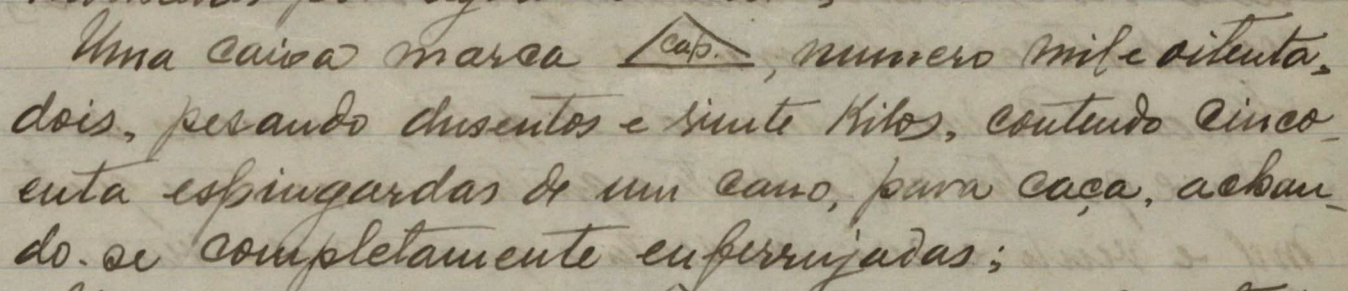 Uma caixa marca cap., numero mil e oitenta,
dois, pesando dusentos e Kilos, contendo cinco_
enta espingardas de um cano, para caça, achan_
do-se completamente enferrujadas;